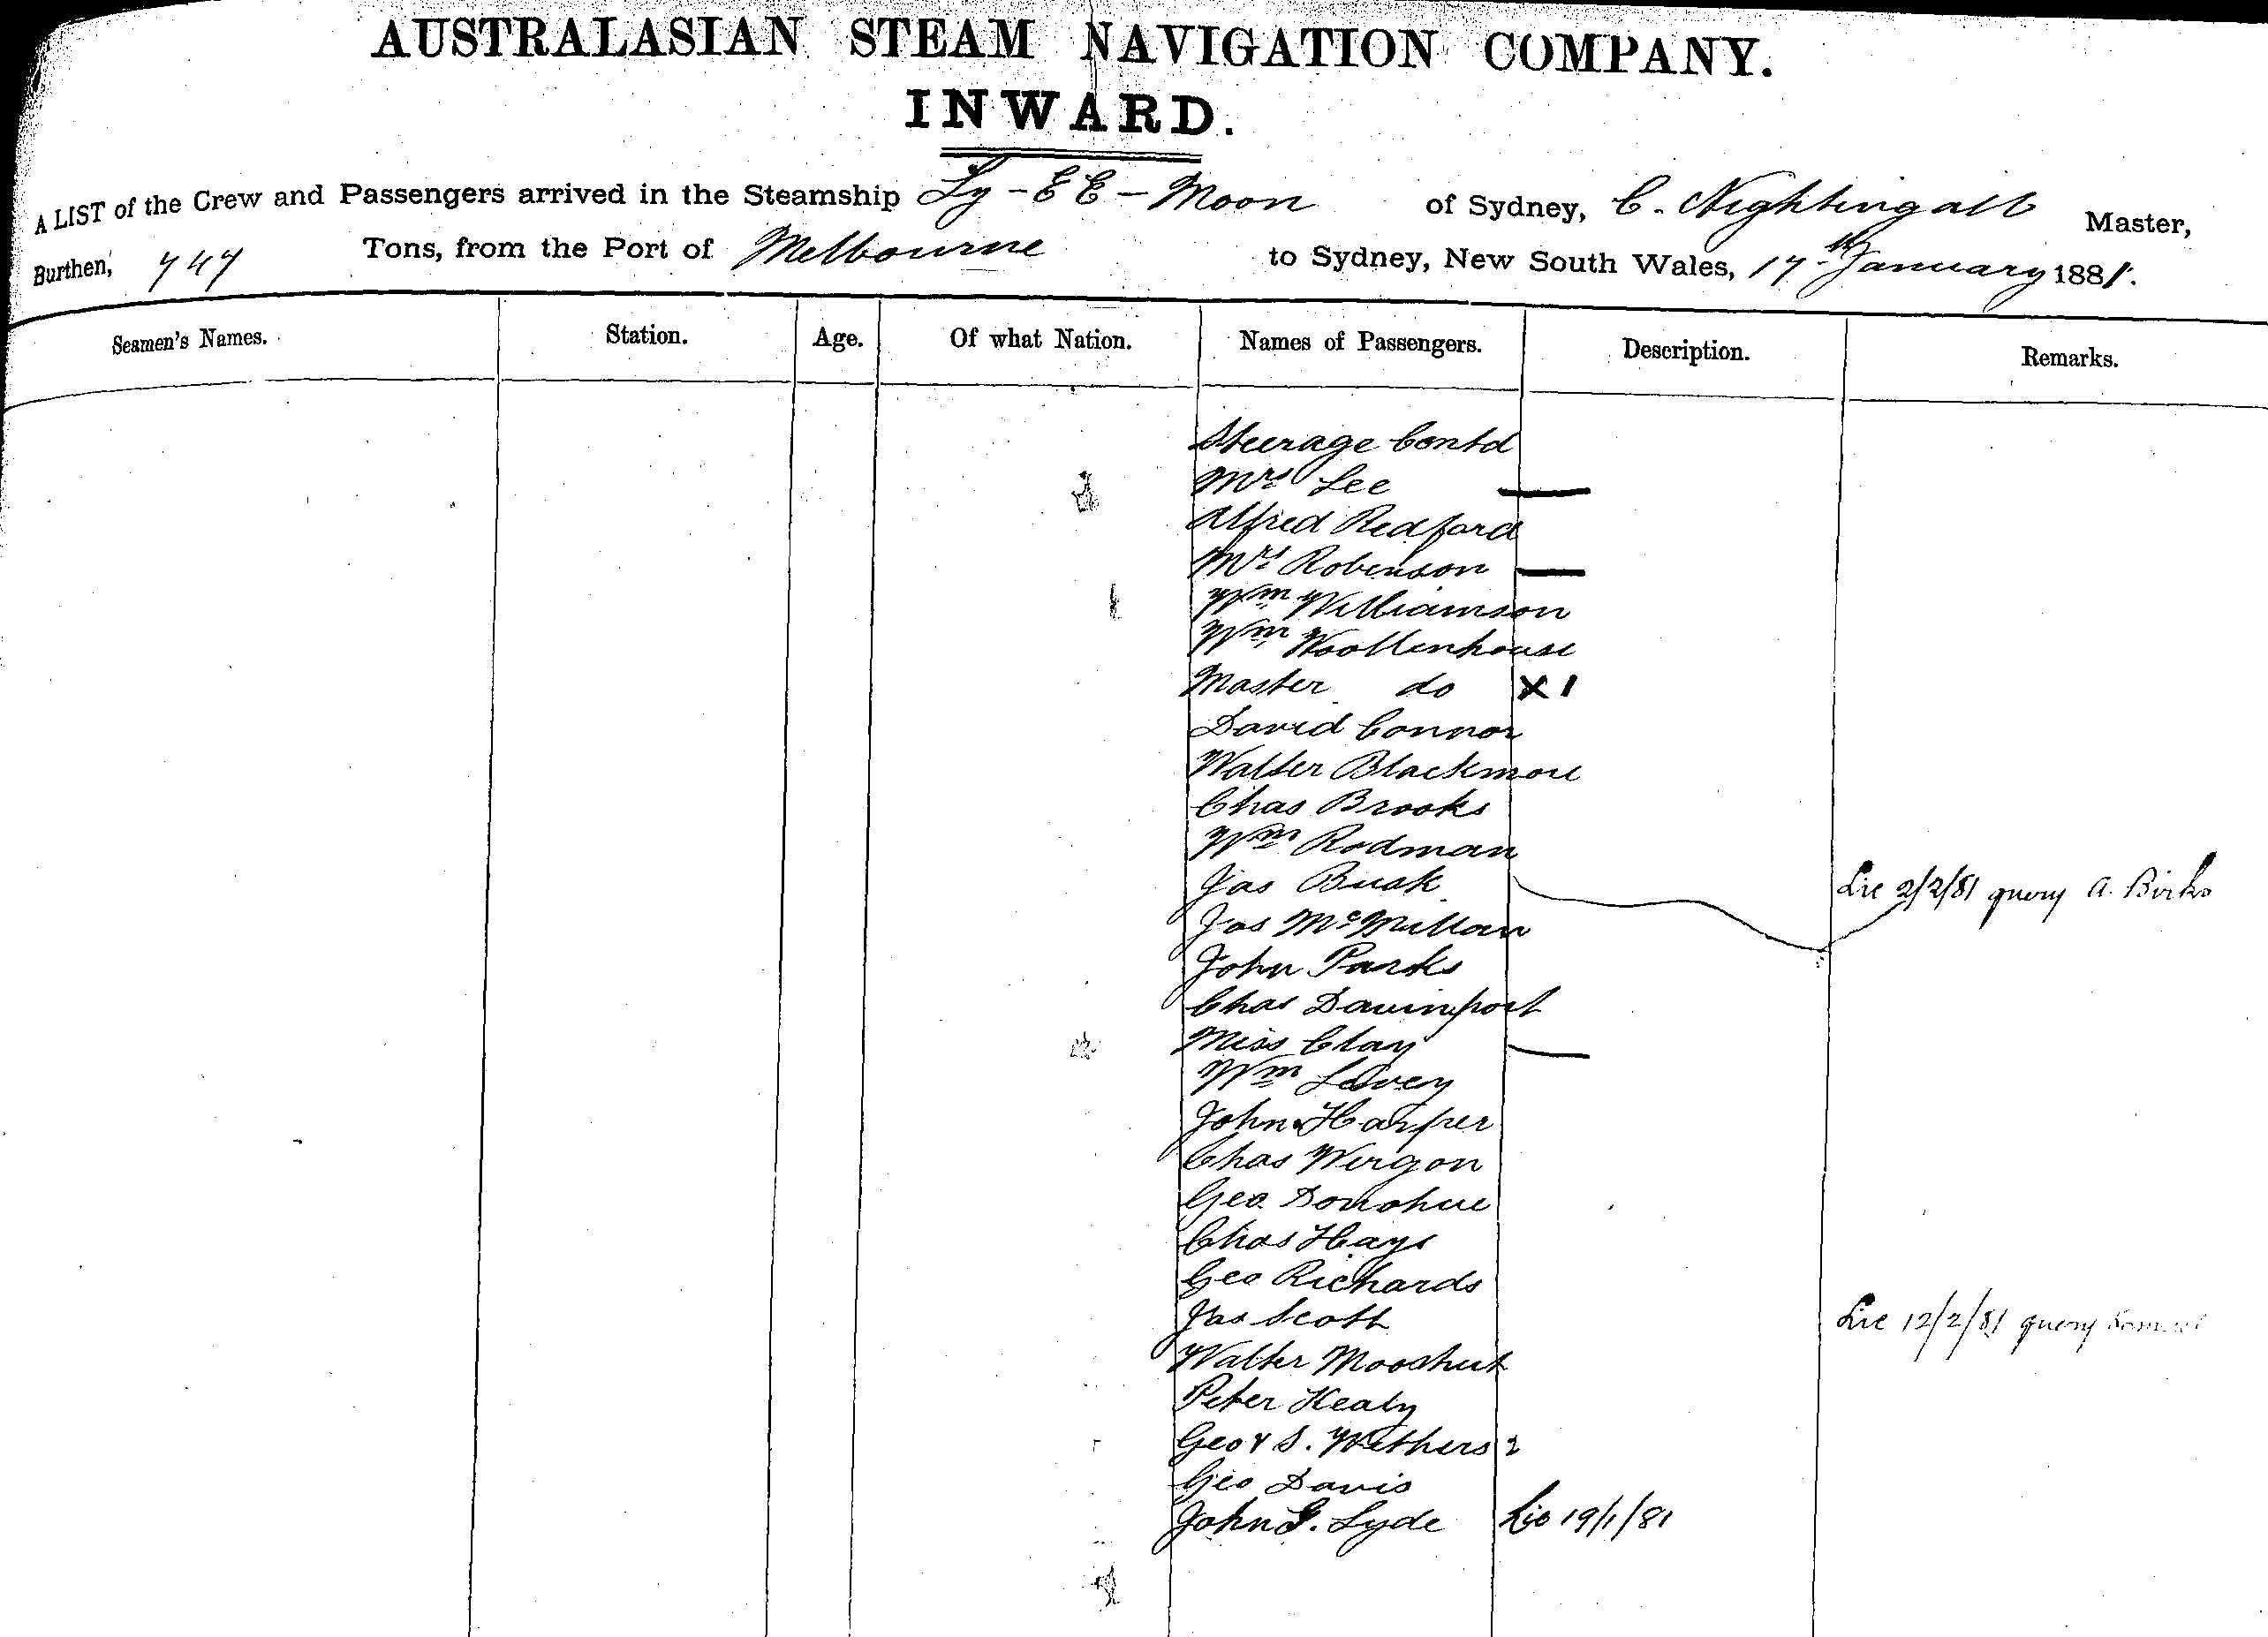 AUSTRALASIAN STEAM NAVIGATION COMPANY.
INWARD.
A LIST of the Crew and Passengers arrived in the Steamship Ly-EE-Moon of Sydney, C. Nightingall Master,
Burthen, 747 Tons, from the Port of Melbourne to Sydney, New South Wales, 17th January 1881.
Seamen's Names. Station. Age. Of what Nation. Names of Passengers. Description. Remarks.
Steerage Contd
Mrs Lee —
Alfred Redford
Mrs Robinson —
Wm Williamson
Wm Woollenhouse
Master do X 1
David Connor
Walter Blackmore
Chas Brooks
Wm Rodman
Jas Busk Lic 2/2/81 query A. Birks
Jas McMillan
John Parks
Chas Davinport
Miss Clay —
Wm
John Harper
Chas Wirgon
Geo Donohue
Chas Hays
Geo Richards
Jas Scott Lic 12/2/81 query
Walter
Peter Healy
Geo & S. Withers 2
Geo Davis
John G. Lyde Lic 19/1/81